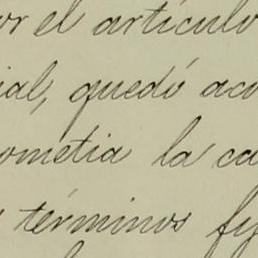 or el artículo
ial, quedó aco
ometia la ca
términos fij